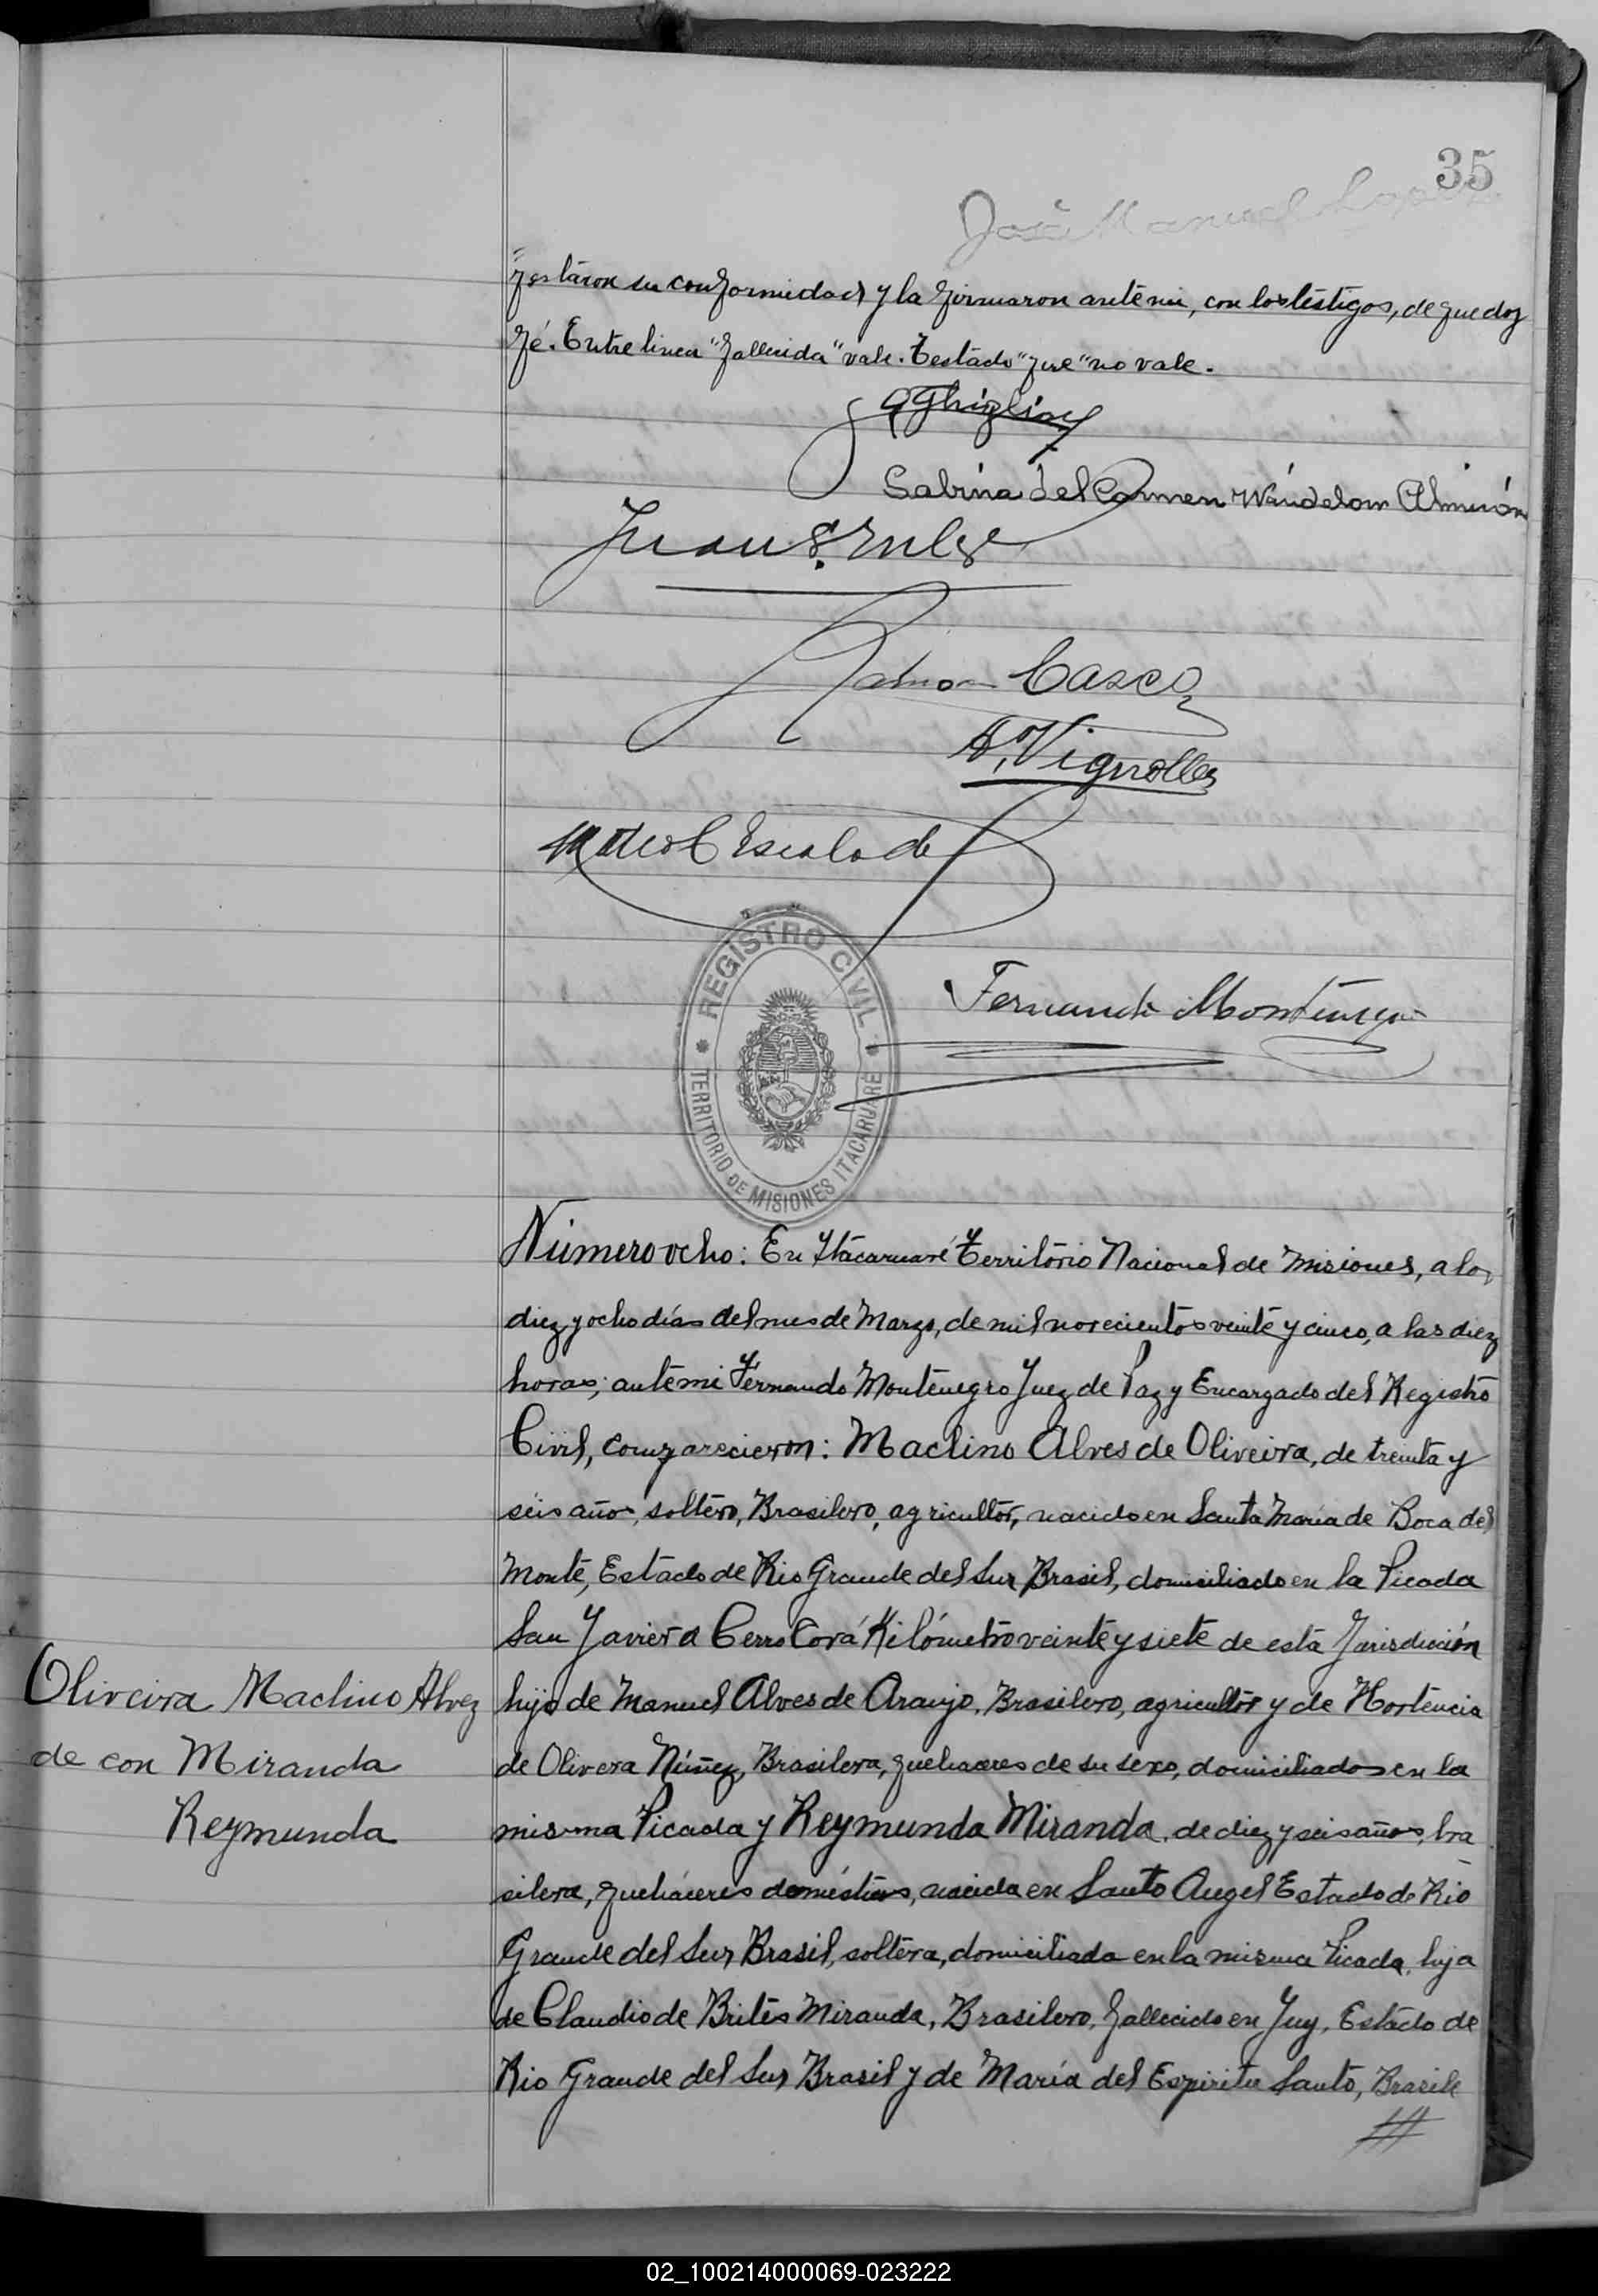 35
José Manuel Lopez
festaron su conformidad y la firmaron ante mi, con los testigos, de que doy
fé. Entre linea "fallecida" vale. Testado "fue" no vale.
Sabina del Carmen Wandelow Almirón
Juan
Ramon Casco
A. Vignolles
Mateo C Escalada
REGISTRO CIVIL
TERRITORIO DE MISIONES ITACARUARÉ
Fernando Montenegro
Número ocho: En Ytacaruaré Territorio Nacional de Misiones, a los
diez y ocho días del mes de Marzo, de mil novecientos veinte y cinco, a las diez
horas; ante mi Fernando Montenegro Juez de Paz y Encargado del Registro
Civil, comparecieron: Maclino Alves de Oliveira, de treinta y
seis años, soltero, Brasilero, agricultor, nacido en Santa María de Boca del
Monte, Estado de Rio Grande del Sur, Brasil, domiciliado en la Picada
San Javier a Cerro Corá Kilómetro veinte y siete de esta Jurisdicción
Oliveira Maclino Alvez
de con Miranda
Reymunda
hijo de Manuel Alves de Araujo, Brasilero, agricultor y de Hortencia
de Olivera Núñez, Brasilera, quehaceres de su sexo, domiciliados en la
misma Picada y Reymunda Miranda, de diez y seis años, bra
silera, quehaceres domésticos, nacida en Santo Angel Estado de Rio
Grande del Sur, Brasil, soltera, domiciliada en la misma Picada, hija
de Claudio de Brites Miranda, Brasilero, fallecido en Juy, Estado de
Rio Grande del Sur, Brasil y de María del Espiritu Santo, Brasile
///
02_100214000069-023222